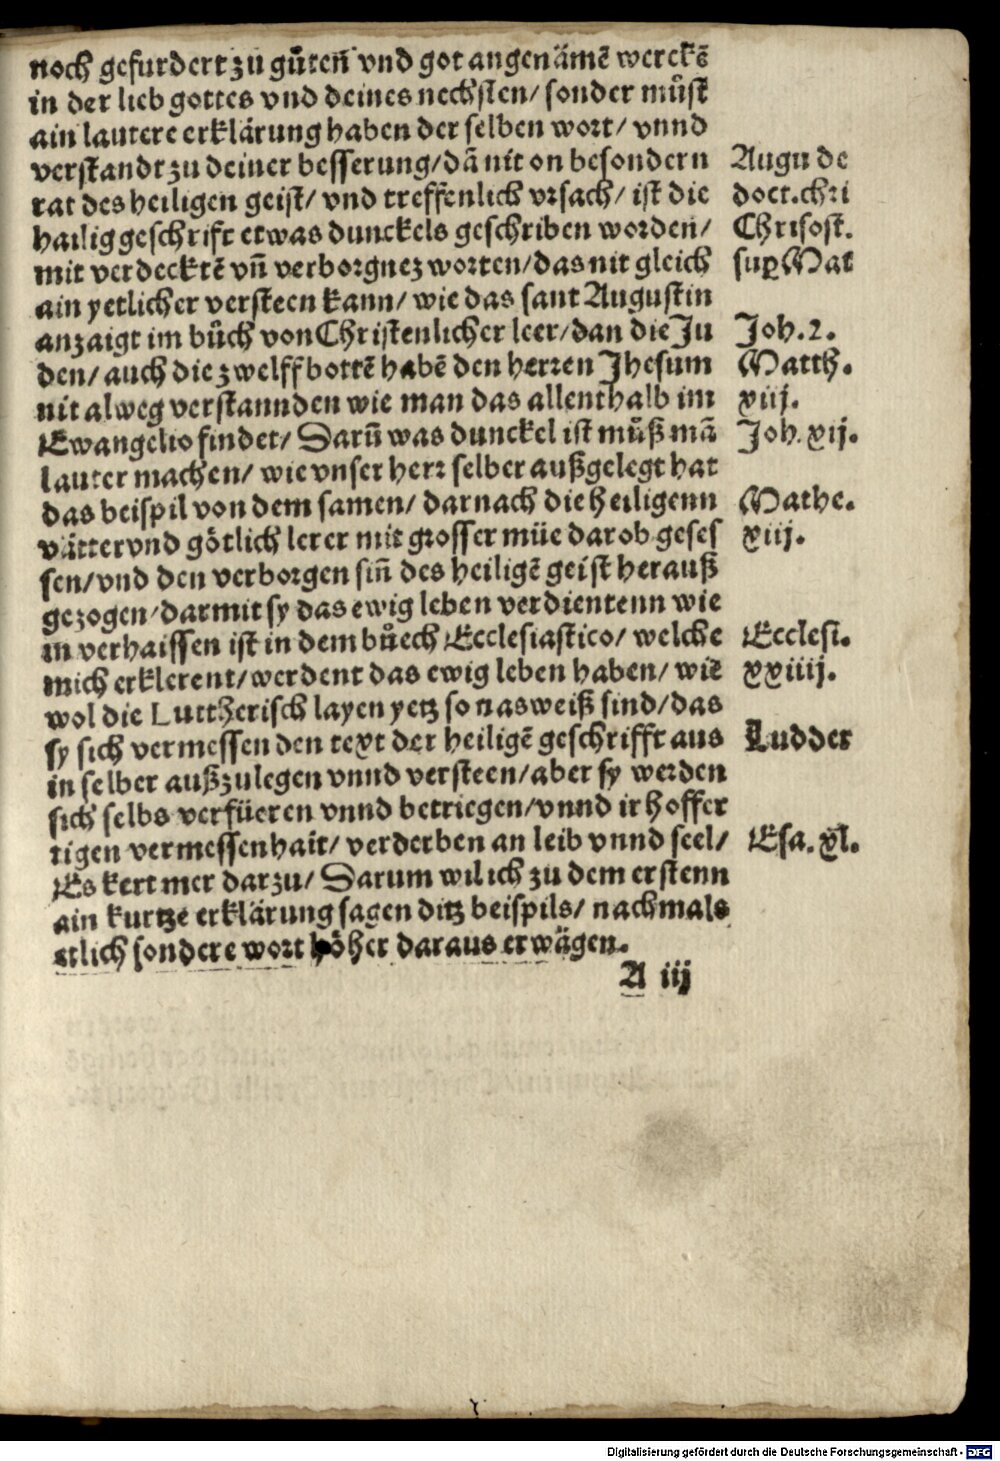 noch gefurdert zu gůten̄ vnd got angenämē werckē
in der lieb gottes vnd deines nechsten/ sonder můst
ain lautere erklärung haben der selben wort/ vnnd
verstandt zu deiner besserung/ dā nit on besondern
rat des heiligen geist/ vnd treffenlich vrsach/ ist die
hailig geschrift etwas dunckels geschriben worden/
mit verdecktē vn̄ verborgnez worten/ das nit gleich
ain yetlicher versteen kann/ wie das sant Augustin
anzaigt im bůch von Christenlicher leer/ dan die Ju
den/ auch die zwelff bottē habē den herren Jhesum
nit alweg verstannden wie man das allenthalb im
Ewangelio findet/ Darū was dunckel ist můß mā
lauter machen/ wie vnser herr selber außgelegt hat
das beispil von dem samen/ darnach die heiligenn
vätter vnd götlich lerer mit grosser müe darob geses
sen/ vnd den verborgen sin̄ des heiligē geist herauß
gezogen/ darmit sy das ewig leben verdientenn wie
in verhaissen ist in dem bůech Ecclesiastico/ welche
mich erklerent/ werdent das ewig leben haben/ wie
wol die Luttherisch layen yetz so nasweiß sind/ das
sy sich vermessen den text der heiligē geschrifft aus
in selber außzulegen vnnd versteen/ aber sy werden
sich selbs verfüeren vnnd betriegen/ vnnd ir hoffer
tigen vermessenhait/ verderben an leib vnnd seel/
Es kert mer darzu/ Darum wil ich zu dem erstenn
ain kurtze erklärung sagen ditz beispils/ nachmals
etlich sondere wort höher daraus erwägen.
A iij
Augu de
doct. chri
Chrisost.
sup Mat
Joh. 2.
Matth.
xiij.
Joh. xij.
Mathe.
xiij.
Ecclesi.
xxiiij.
Ludder
Esa. xl.
Digitalisierung gefördert durch die Deutsche Forschungsgemeinschaft - DFG